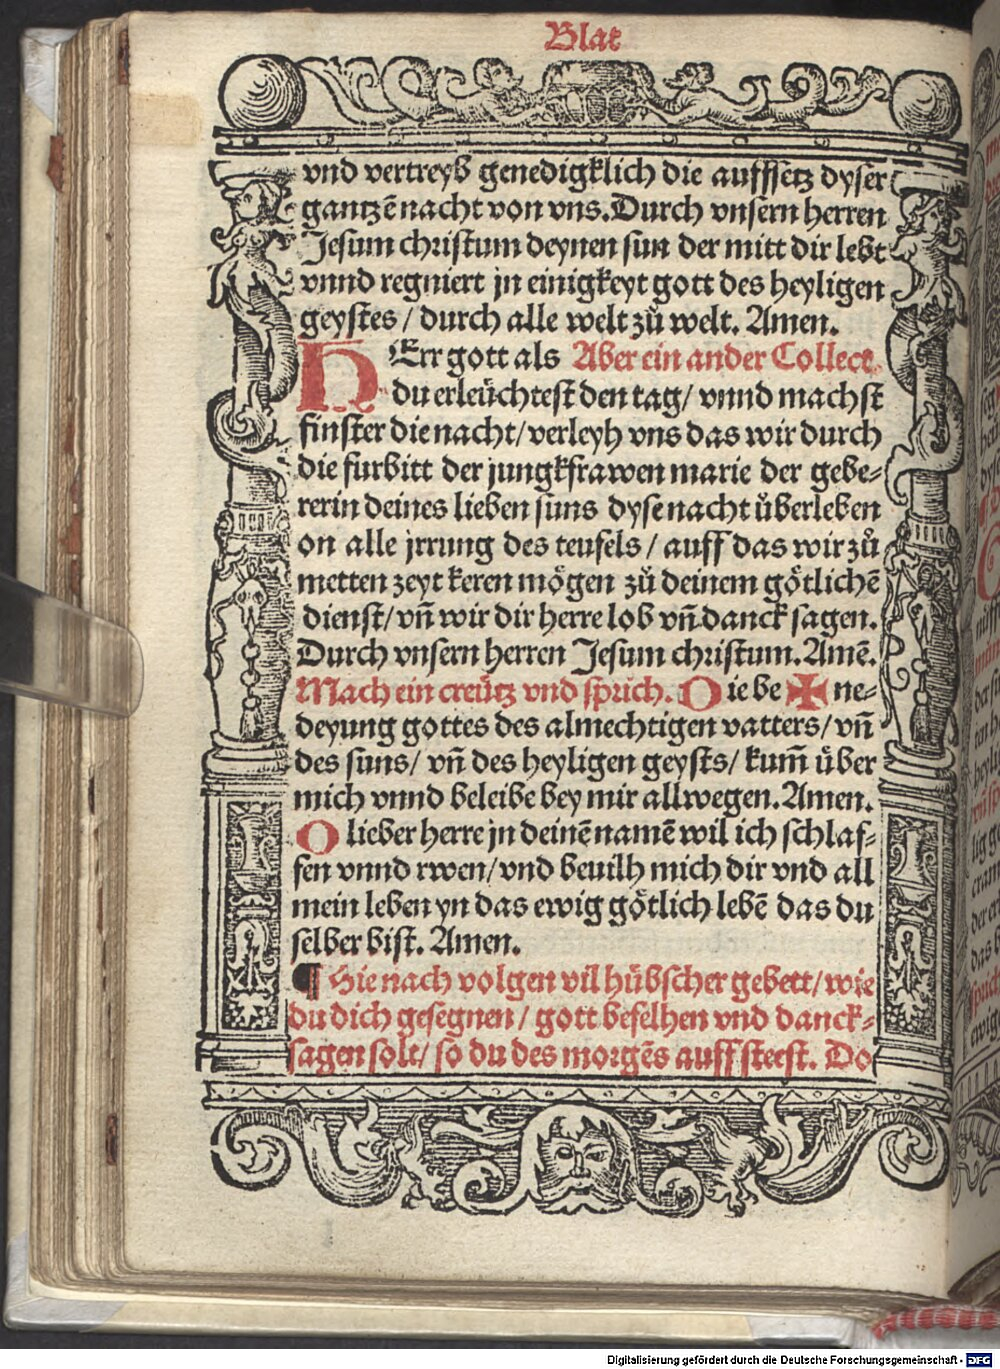 Blat
vnd vertreyb genedigklich die aufffetz dyser
gantzē nacht von vns. Durch vnsern herren
Jesum christum deynen sun der mitt dir lebt
vnnd regniert jn einigkeyt gott des heyligen
geystes / durch alle welt zů welt. Amen.
HErr gott als Aber ein ander Collect.
du erleüchtest den tag / vnnd machst
finster die nacht / verleyh vns das wir durch
die furbitt der jungkfrawen marie der gebe⸗
rerin deines lieben suns dyse nacht ůberleben
on alle jrrung des teufels / auff das wir zů
metten zeyt keren mögen zů deinem götlichē
dienst / vñ wir dir herre lob vñ danck sagen.
Durch vnsern herren Jesum christum. Amē.
Mach ein creütz vnd sprich. Die be ✠ ne⸗
deyung gottes des almechtigen vatters / vñ
des suns / vñ des heyligen geysts / kum̄ über
mich vnnd beleibe bey mir allwegen. Amen.
O lieber herre jn deinē namē wil ich schlaf⸗
fen vnnd rwen / vnd beuilh mich dir vnd all
mein leben yn das ewig götlich lebē das du
selber bist. Amen.
¶ Hie nach volgen vil hübscher gebett / wie
du dich gesegnen / gott befelhen vnd danck⸗
sagen solt / so du des morgēs auff steest. Do
Digitalisierung gefördert durch die Deutsche Forschungsgemeinschaft - DFG